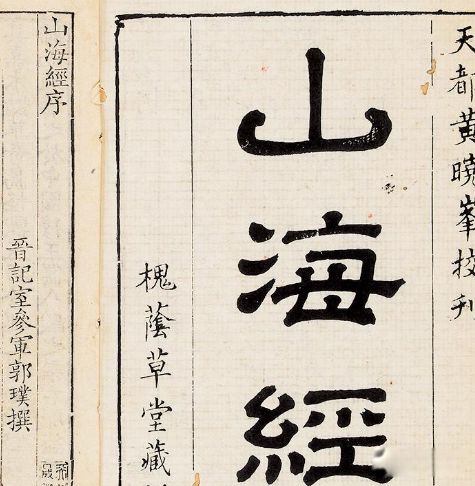 天都黄曉峯校刋
山海經
槐蔭草堂藏
山海經序
晉記室參軍郭璞撰